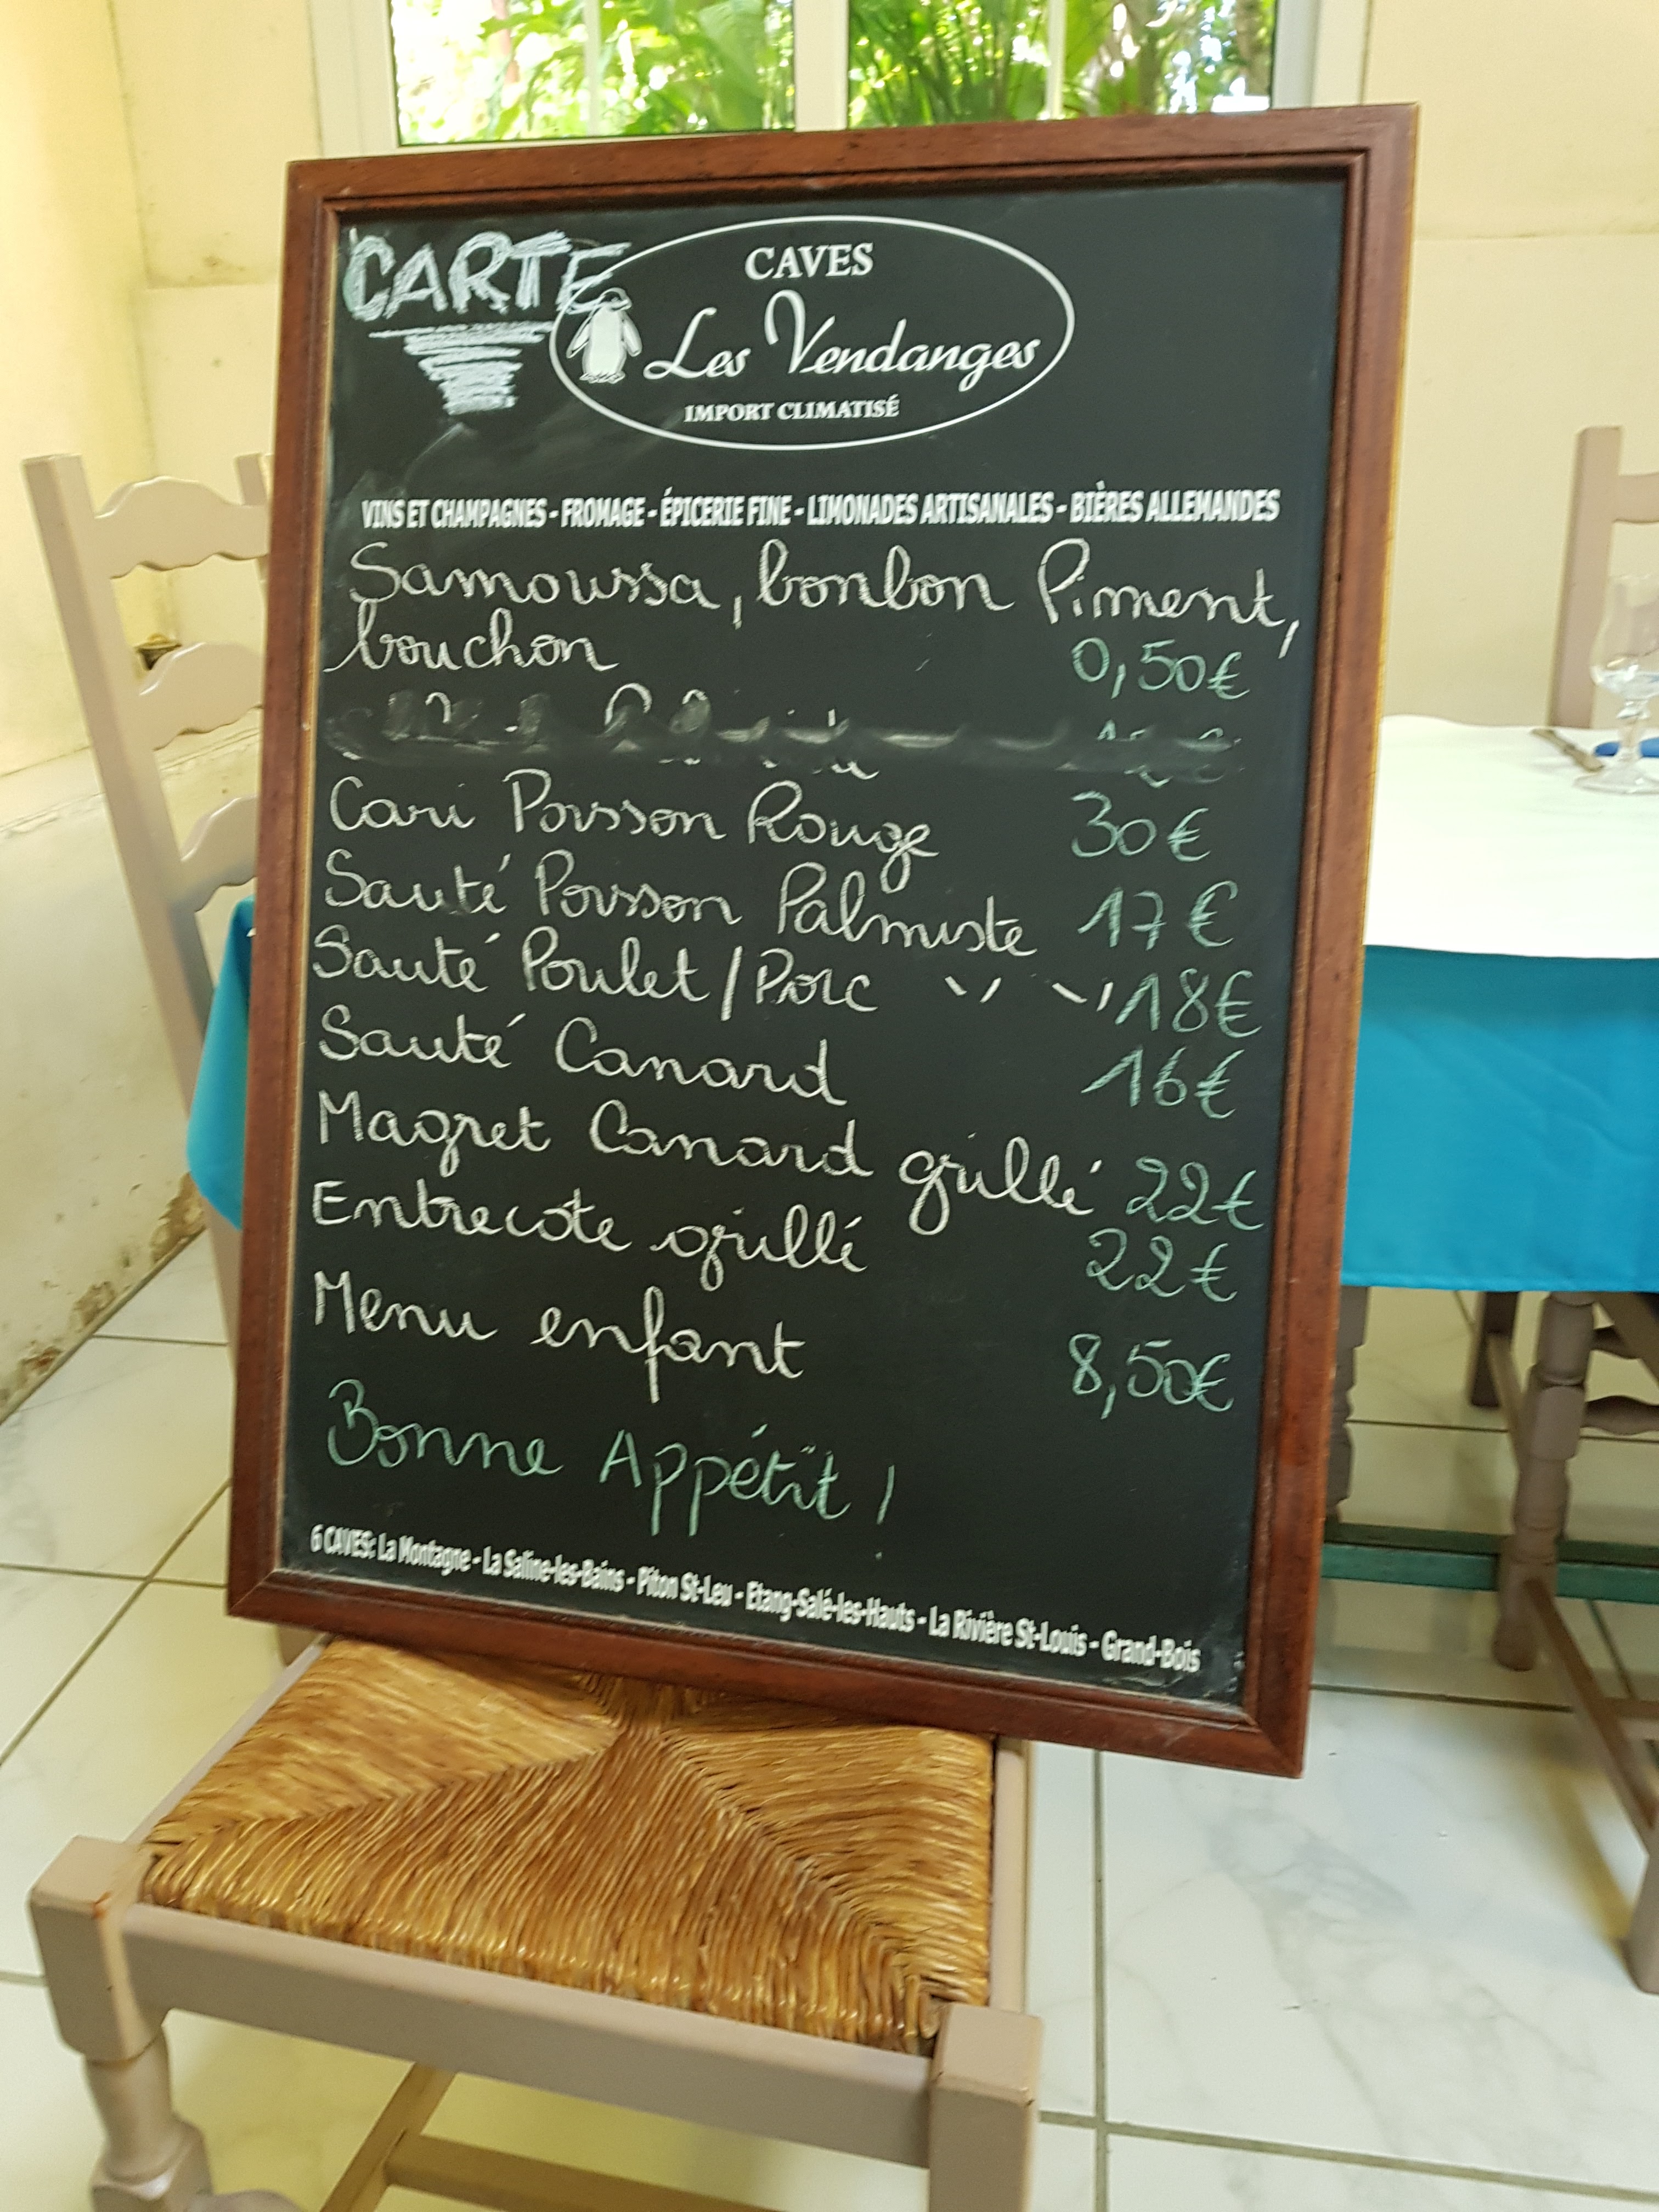 CARTE
CAVES
Les Vendanges
IMPORT CLIMATISÉ
VINS ET CHAMPAGNES - FROMAGE - ÉPICERIE FINE - LIMONADES ARTISANALES - BIÈRES ALLEMANDES
Samoussa, bonbon Piment,
bouchon 0,50€
Cari Poisson Rouge 30€
Sauté Poisson Palmiste 17€
Sauté Poulet/Porc " " 18€
Sauté Canard 16€
Magret Canard grillé 22€
Entrecote grillé 22€
Menu enfant 8,50€
Bonne Appétit !
6 CAVES: La Montagne - La Saline-les-Bains - Piton St-Leu - Etang-Salé-les-Hauts - La Rivière St-Louis - Grand-Bois